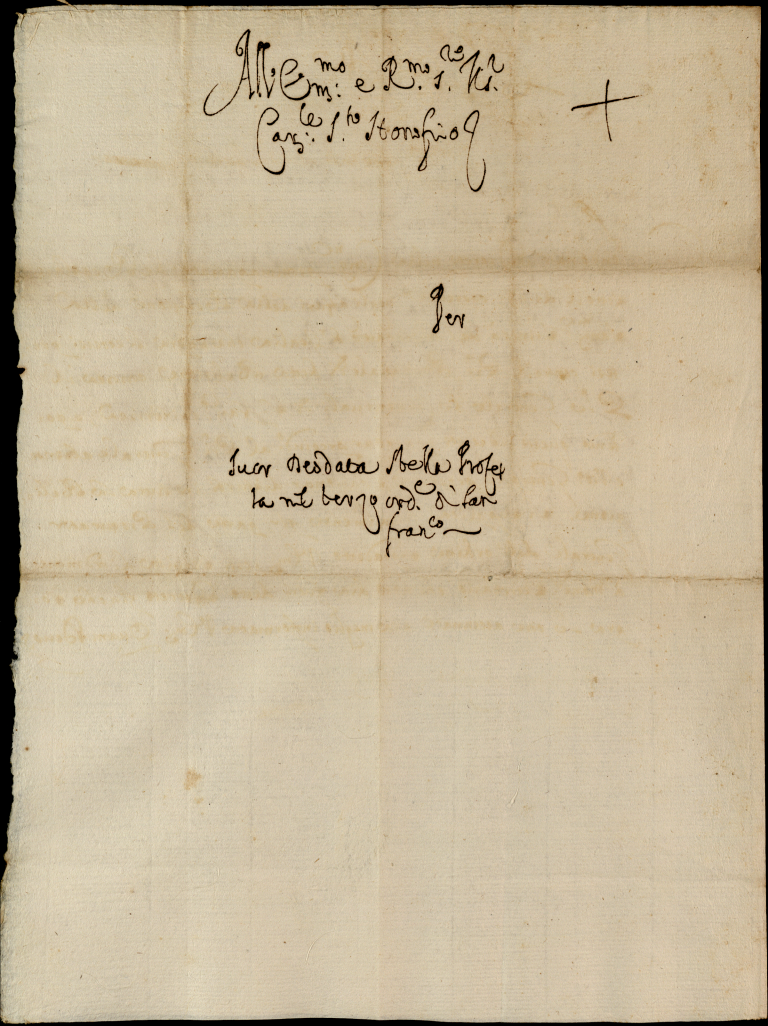 All' Em.mo e R.mo S.re N.r
Car.le S.to Honofrio
Per
Suor Deodata Stella Profes
sa nel terzo ord.e di San
Fran.co